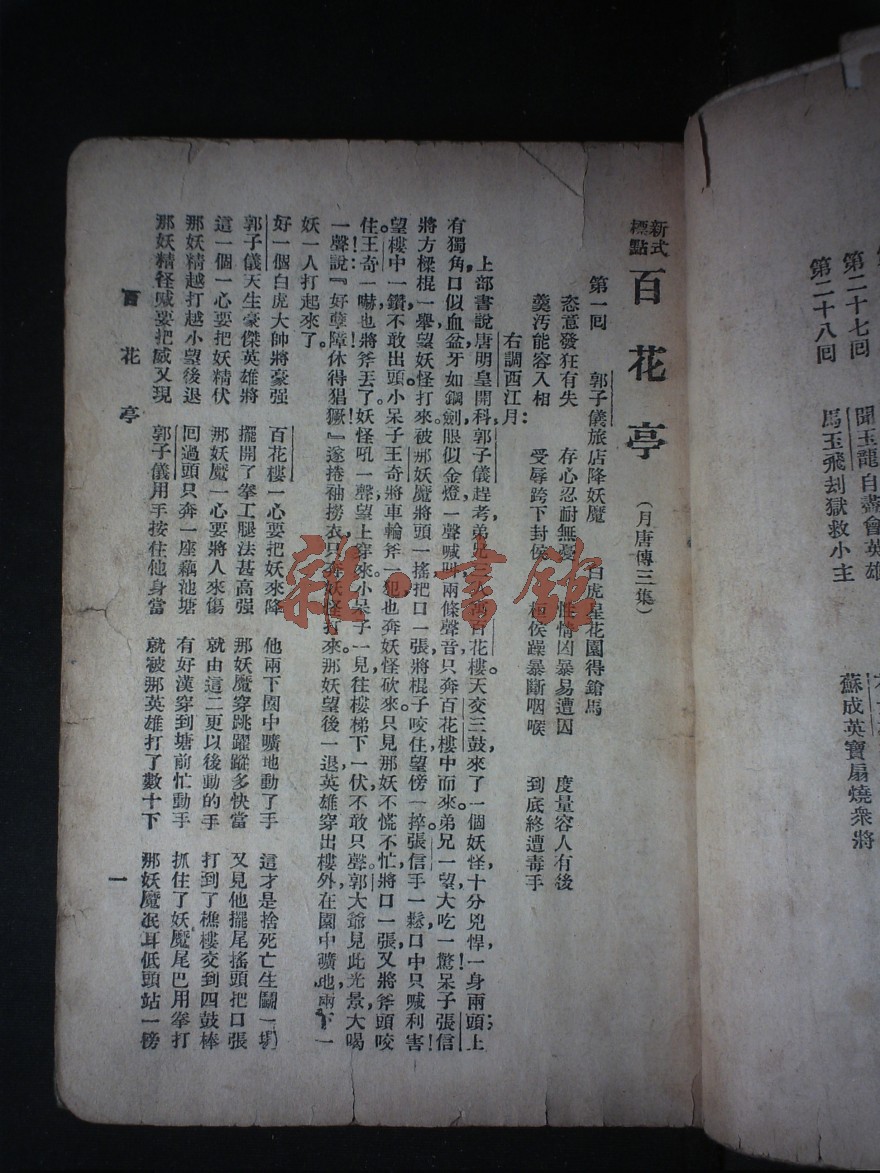 第二十七回 聞玉龍白晝會英雄
第二十八回 馬玉飛刦獄救小主 蘇成英寶扇燒衆將
新式標點 百花亭 (月唐傳三集)
第一回 郭子儀旅店降妖魔 白虎星花園得鎗馬
恣意發狂有失 存心忍耐無憂 性情凶暴易遭囚 度量容人有後
羹汚能容入相 受辱跨下封侯 桓侯躁暴斷咽喉 到底終遭毒手
右調西江月：
上部書說唐明皇開科，郭子儀趕考弟兄三人寓百花樓。天交三鼓來了一個妖怪，十分兇悍，一身兩頭；上
有獨角，口似血盆，牙如鋼劍，眼似金燈，一聲喊叫，兩條聲音，只奔百花樓中而來。弟兄一望大吃一驚！呆子張信
將方樑棍一舉望妖怪打來，被那妖魔將頭一搖，把口一張，將棍子咬住，望傍一摔，張信手一鬆，口中只喊利害！
望樓中一鑽，不敢出頭。小呆子王奇將車輪斧一犯，也奔妖怪砍來。只見那妖不慌不忙，將口一張，又將斧頭咬
住。王奇一嚇，也將斧丟了。妖怪吼一聲，望上穿來。小呆子一見，往樓梯下一伏，不敢只聲。郭大爺見此光景，大喝
一聲！說：『好孽障休得猖獗！』遂捲袖撈衣，只奔妖怪打來。那妖望後一退，英雄穿出樓外，在園中曠地，兩下一
妖一人打起來了。
好一個白虎大帥將豪强 百花樓一心要把妖來降 他兩下園中曠地動了手 這才是捨死亡生鬬一塲
郭子儀天生豪傑英雄將 擺開了拳工腿法甚高强 那妖魔穿跳躍蹤多快當 又見他擺尾搖頭把口張
這一個一心要把妖精伏 那妖魔一心要將人來傷 就由這二更以後動的手 打到了樵樓交到四鼓棒
那妖精越打越小望後退 回過頭只奔一座藕池塘 有好漢穿到塘前忙動手 抓住了妖魔尾巴用拳打
那妖精怪喊要把威又現 郭子儀用手按住他身當 就被那英雄打了數十下 那妖魔泯耳低頭站一傍
百花亭 一
雜·書館